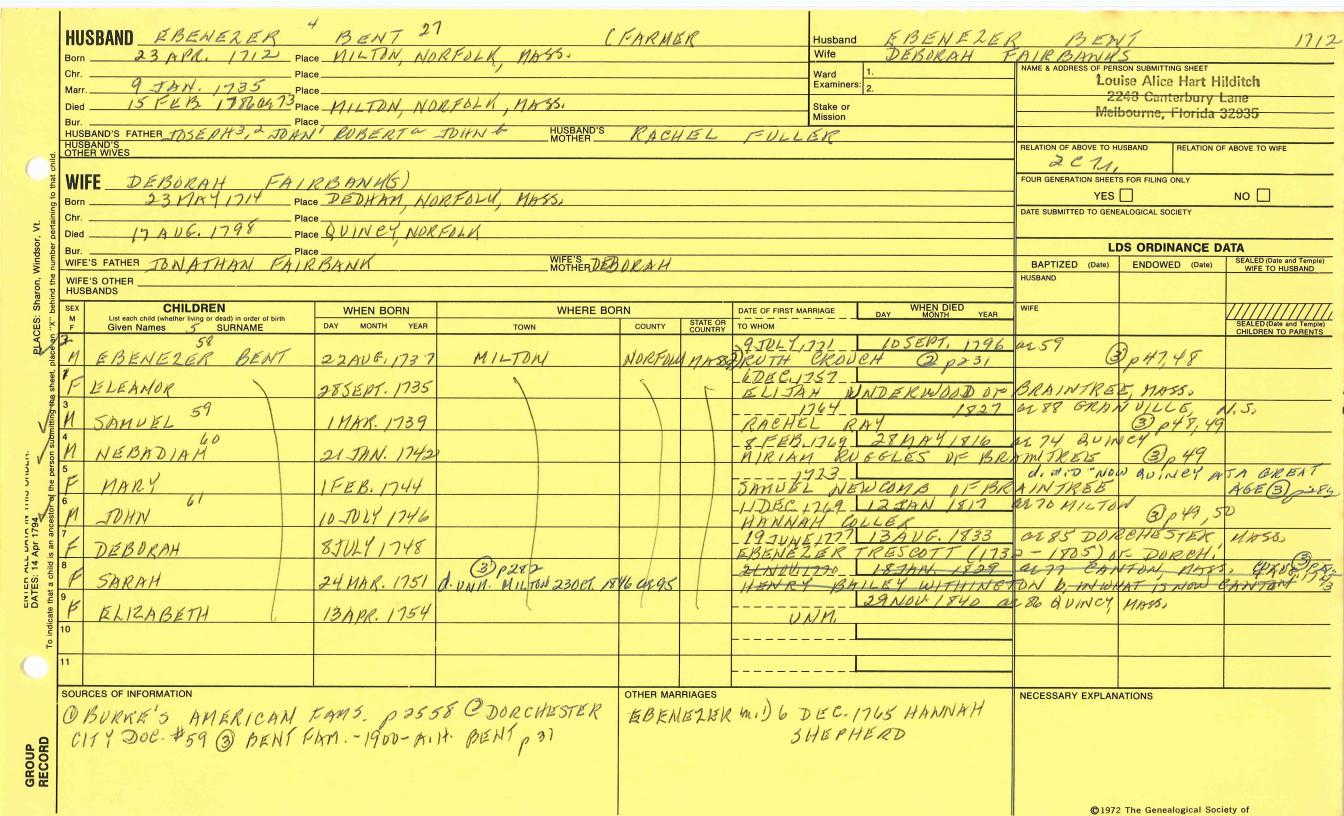 HUSBAND EBENEZER 4 BENT 27 (FARMER
Born 23 APR. 1712 Place MILTON, NORFOLK, MASS.
Chr. Place
Marr. 9 JAN. 1735 Place
Died 15 FEB 1786 æ 73 Place MILTON, NORFOLK, MASS.
Bur. Place
HUSBAND'S FATHER JOSEPH 3, 2 JOHN 1 ROBERT a JOHN b HUSBAND'S MOTHER RACHEL FULLER
HUSBAND'S OTHER WIVES
WIFE DEBORAH FAIRBANK(S)
Born 23 MAY 1714 Place DEDHAM, NORFOLK, MASS.
Chr. Place
Died 17 AUG. 1798 Place QUINCY, NORFOLK
Bur. Place
WIFE'S FATHER JONATHAN FAIRBANK WIFE'S MOTHER DEBORAH
WIFE'S OTHER HUSBANDS
Husband EBENEZER BENT 1712
Wife DEBORAH FAIRBANKS
Ward Examiners: 1. 2.
Stake or Mission
NAME & ADDRESS OF PERSON SUBMITTING SHEET
Louise Alice Hart Hilditch
2243 Canterbury Lane
Melbourne, Florida 32935
RELATION OF ABOVE TO HUSBAND RELATION OF ABOVE TO WIFE
FOUR GENERATION SHEETS FOR FILING ONLY
YES NO
DATE SUBMITTED TO GENEALOGICAL SOCIETY
LDS ORDINANCE DATA
BAPTIZED (Date) ENDOWED (Date) SEALED (Date and Temple) WIFE TO HUSBAND
HUSBAND
WIFE
SEALED (Date and Temple) CHILDREN TO PARENTS
SEX M F CHILDREN WHEN BORN WHERE BORN DATE OF FIRST MARRIAGE WHEN DIED
List each child (whether living or dead) in order of birth
Given Names 5 SURNAME DAY MONTH YEAR TOWN COUNTY STATE OR COUNTRY TO WHOM DAY MONTH YEAR
2 M EBENEZER BENT 58 22 AUG. 1737 MILTON NORFOLK MASS 9 JULY, 1771 10 SEPT. 1796 æ 59
RUTH CROUCH ② p231 ③ p47,48
1 F ELEANOR 28 SEPT. 1735 6 DEC. 1757
ELIJAH UNDERWOOD OF BRAINTREE, MASS.
3 M SAMUEL 59 1 MAR. 1739 1764 1827 æ 88 GRANVILLE, N.S.
RACHEL RAY ③ p48,49
4 M NEBADIAH 60 21 JAN. 1742 8 FEB. 1769 28 MAY 1816 æ 74 QUINCY
MIRIAM RUGGLES OF BRAINTREE ③ p49
5 F MARY 1 FEB. 1744 1773 d. "NOW QUINCY AT A GREAT
SAMUEL NEWCOMB OF BRAINTREE AGE ③
6 M JOHN 61 10 JULY 1746 11 DEC. 1769 12 JAN 1817 æ 70 MILTON
HANNAH COLLER ③ p49,50
7 F DEBORAH 8 JULY 1748 19 JUNE 1777 13 AUG. 1833 æ 85 DORCHESTER, MASS.
EBENEZER TRESCOTT (1732-1805) OF DORCH.
8 F SARAH 24 MAR. 1751 ③ p282 d. UNM. MILTON 23 OCT. 1846 æ 95 21 NOV 1770 18 JAN. 1829 æ 77 CANTON, MASS.
HENRY BAILEY WITHINGTON b. IN WHAT IS NOW CANTON
9 F ELIZABETH 13 APR. 1754 29 NOV. 1840 æ 86 QUINCY, MASS.
UNM.
10
11
SOURCES OF INFORMATION
① BURKE'S AMERICAN FAMS. p2558 ② DORCHESTER
CITY DOC. #59 ③ BENT FAM.-1900-A.H. BENT p 37
OTHER MARRIAGES
EBENEZER m.1) 6 DEC. 1765 HANNAH
SHEPHERD
NECESSARY EXPLANATIONS
©1972 The Genealogical Society of
GROUP RECORD
ENTER ALL DATA IN THIS ORDER:
DATES: 14 Apr 1794 PLACES: Sharon, Windsor, Vt.
To indicate that a child is an ancestor of the person submitting the sheet, place an "X" behind the number pertaining to that child.